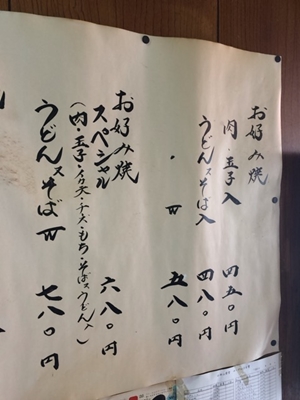 お好み焼
肉・玉子入 四五〇円
うどん又そば入 四八〇円
〃 W 五八〇円
お好み焼
スペシャル 六八〇円
(肉・玉子・イカ天・チーズ・もち・そば又うどん入)
うどん又そばW 七八〇円